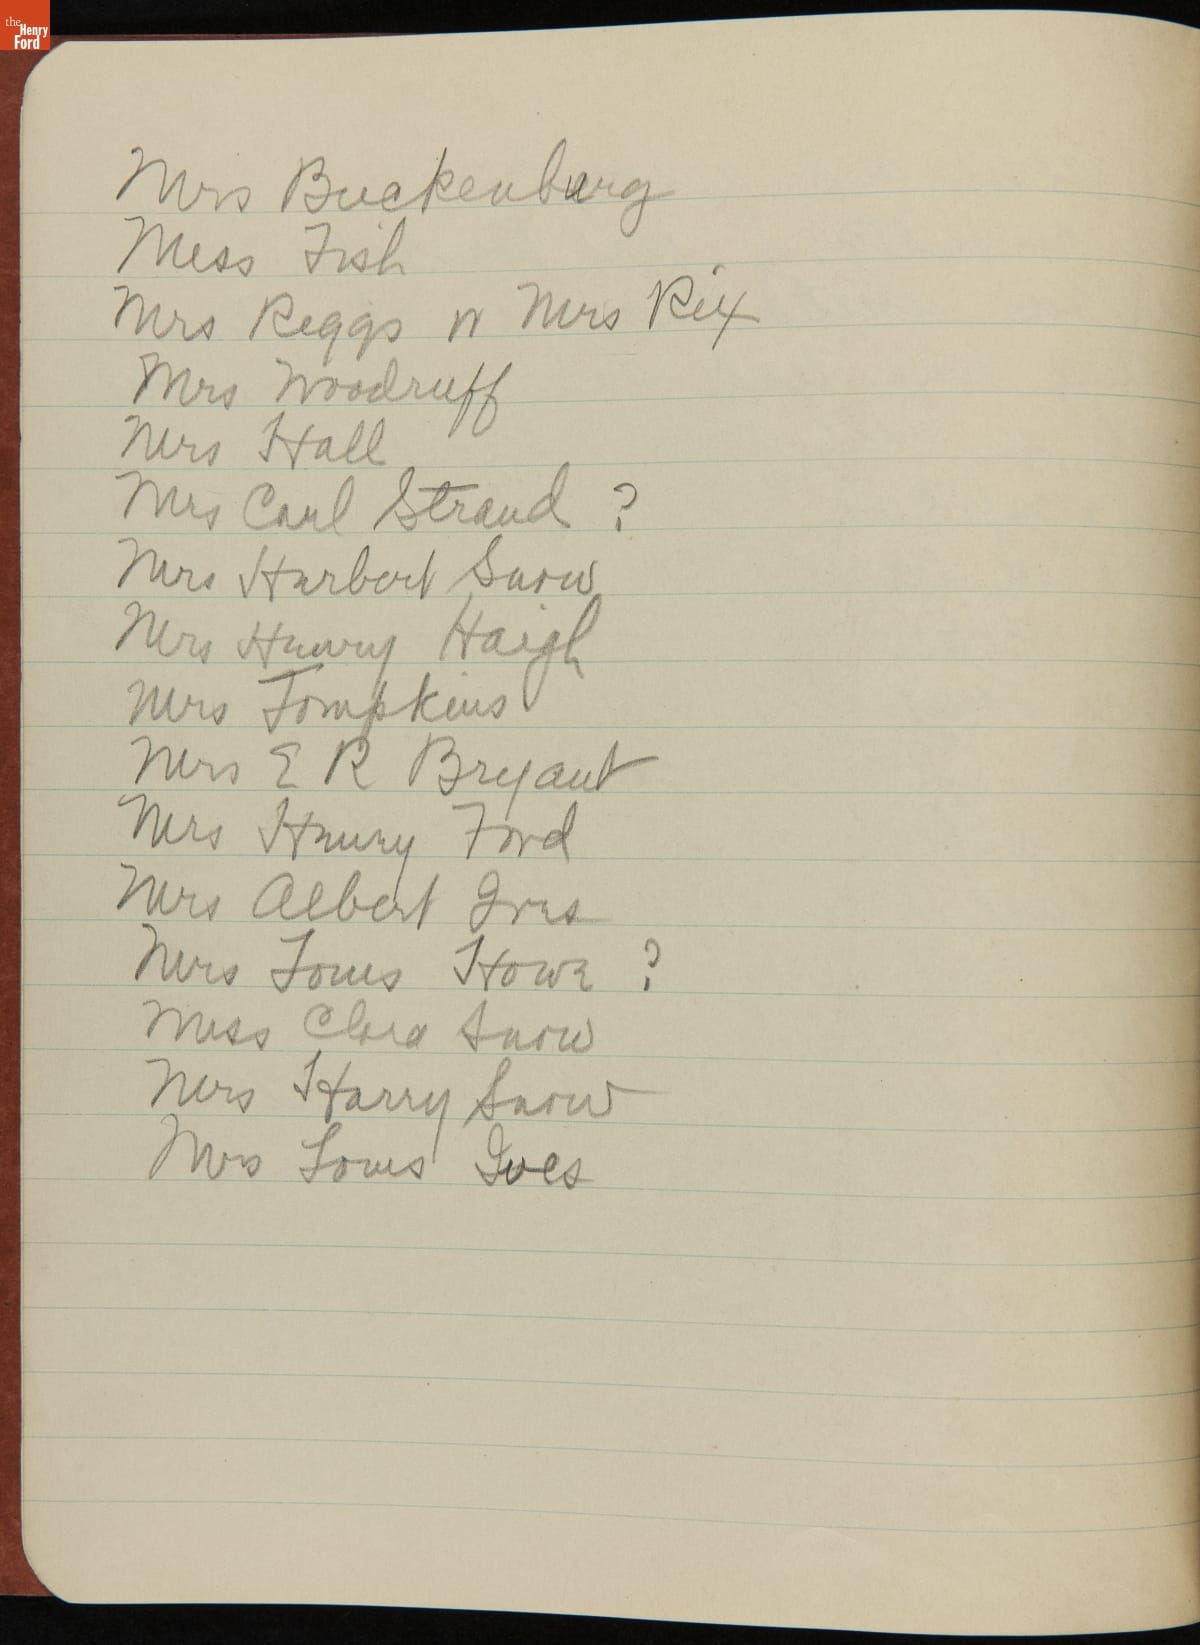 the Henry Ford
Mrs Buckenburg
Miss Fish
Mrs Riggs or Mrs Rix
Mrs Woodruff
Mrs Hall
Mrs Carl Strand ?
Mrs Herbert Snow
Mrs Henry Haigh
Mrs Tompkins
Mrs E R Bryant
Mrs Henry Ford
Mrs Albert Ives
Mrs Louis Howe ?
Miss Clara Snow
Mrs Harry Snow
Mrs Louis Ives